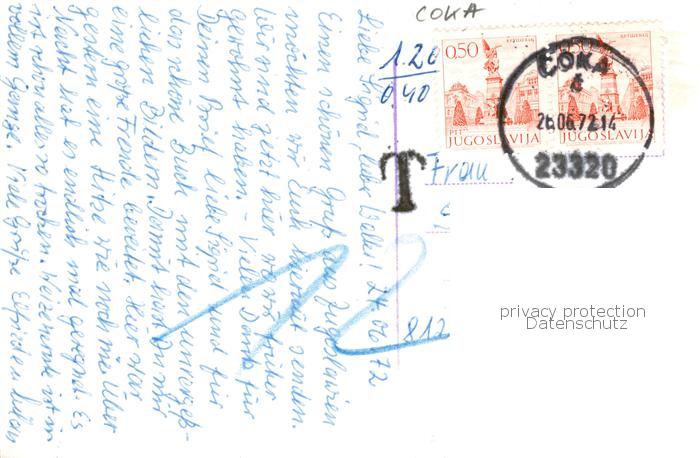 COKA
1.20
0.40
0,50
KRUŠEVAC
PTT
JUGOSLAVIJA
0,50
KRUŠEVAC
JUGOSLAVIJA
ČOKA
26.06.72.14
23320
T
Frau
812
12
privacy protection
Datenschutz
Liebe Sigrid, lieber 24.06.72
Einen schönen Gruß aus Jugoslawien
möchten wir Euch hiermit senden.
Wir sind jetzt hier
gereist haben. - Vielen Dank für
Deinen Brief, liebe Sigrid und für
das schöne Buch mit den
lichen Bildern. Damit hast Du mir
eine große Freude bereitet. Hier war
gestern eine Hitze wie noch nie. Über
Nacht hat es endlich mal geregnet. Es
ist schon alles so trocken. Weizenernte ist in
vollem Gange. Viele Grüße